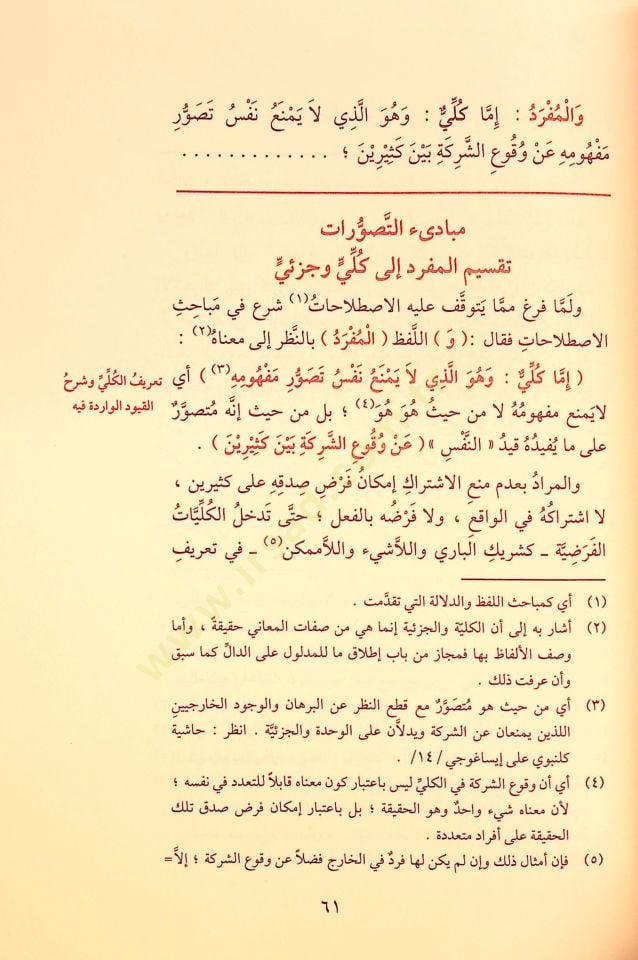 وَالْمُفْرَدُ : إِمَّا كُلِّيٌّ : وَهُوَ الَّذِي لاَ يَمْنَعُ نَفْسُ تَصَوُّرِ
مَفْهُومِهِ عَنْ وُقُوعِ الشَّرِكَةِ بَيْنَ كَثِيْرِيْنَ ؛ . . . . . . . . . . . . .
مبادىء التَّصوُّرات
تقسيم المفرد إلى كُلِّيٍّ وجزئيٍّ
ولَمَّا فرغ ممَّا يَتوقَّف عليه الاصطلاحاتُ(١) شرع في مَباحثِ
الاصطلاحاتِ فقال : ( وَ ) اللَّفظ ( الْمُفْرَدُ ) بالنَّظر إلى معناهُ(٢) :
( إِمَّا كُلِّيٌّ : وَهُوَ الَّذِي لاَ يَمْنَعُ نَفْسُ تَصَوُّرِ مَفْهُومِهِ(٣) ) أي
تعريفُ الكُلِّيِّ وشرحُ
القيود الواردة فيه
لايَمنع مفهومُهُ لا من حيثُ هُوَ هُوَ(٤) ؛ بل من حيث إنَّه مُتصوَّرٌ
على ما يُفيدُهُ قيدُ « النَّفْسِ » ( عَنْ وُقُوعِ الشَّرِكَةِ بَيْنَ كَثِيْرِيْنَ ) .
والمرادُ بعدم منعِ الاشتراكِ إمكانُ فَرْضِ صِدقِهِ على كثيرين ،
لا اشتراكُهُ في الواقع ، ولا فَرْضُه بالفعل ؛ حتَّى تَدخلُ الكُلِّيَّاتُ
الفَرَضِيَّة ـ كشريكِ الباري واللاَّشيء واللاَّممكن(٥) ـ في تعريفِ
(١) أي كمباحث اللفظ والدلالة التي تقدَّمت .
(٢) أشار به إلى أن الكليّة والجزئية إنما هي من صفات المعاني حقيقةً ، وأما
وصف الألفاظ بها فمجاز من باب إطلاق ما للمدلول على الدالِّ كما سبق
وأن عرفت ذلك .
(٣) أي من حيث هو مُتصَوَّرٌ مع قطع النظر عن البرهان والوجود الخارجيينِ
اللذين يمنعان عن الشركة ويدلاَّن على الوحدة والجزئيَّة . انظر : حاشية
كلنبوي على إيساغوجي /١٤/ .
(٤) أي أن وقوع الشركة في الكليِّ ليس باعتبار كون معناه قابلاً للتعدد في نفسه ؛
لأن معناه شيء واحدٌ وهو الحقيقة ؛ بل باعتبار إمكان فرض صدق تلك
الحقيقة على أفراد متعددة .
(٥) فإن أمثال ذلك وإن لم يكن لها فردٌ في الخارج فضلاً عن وقوع الشركة ؛ إلاَّ=
٦١